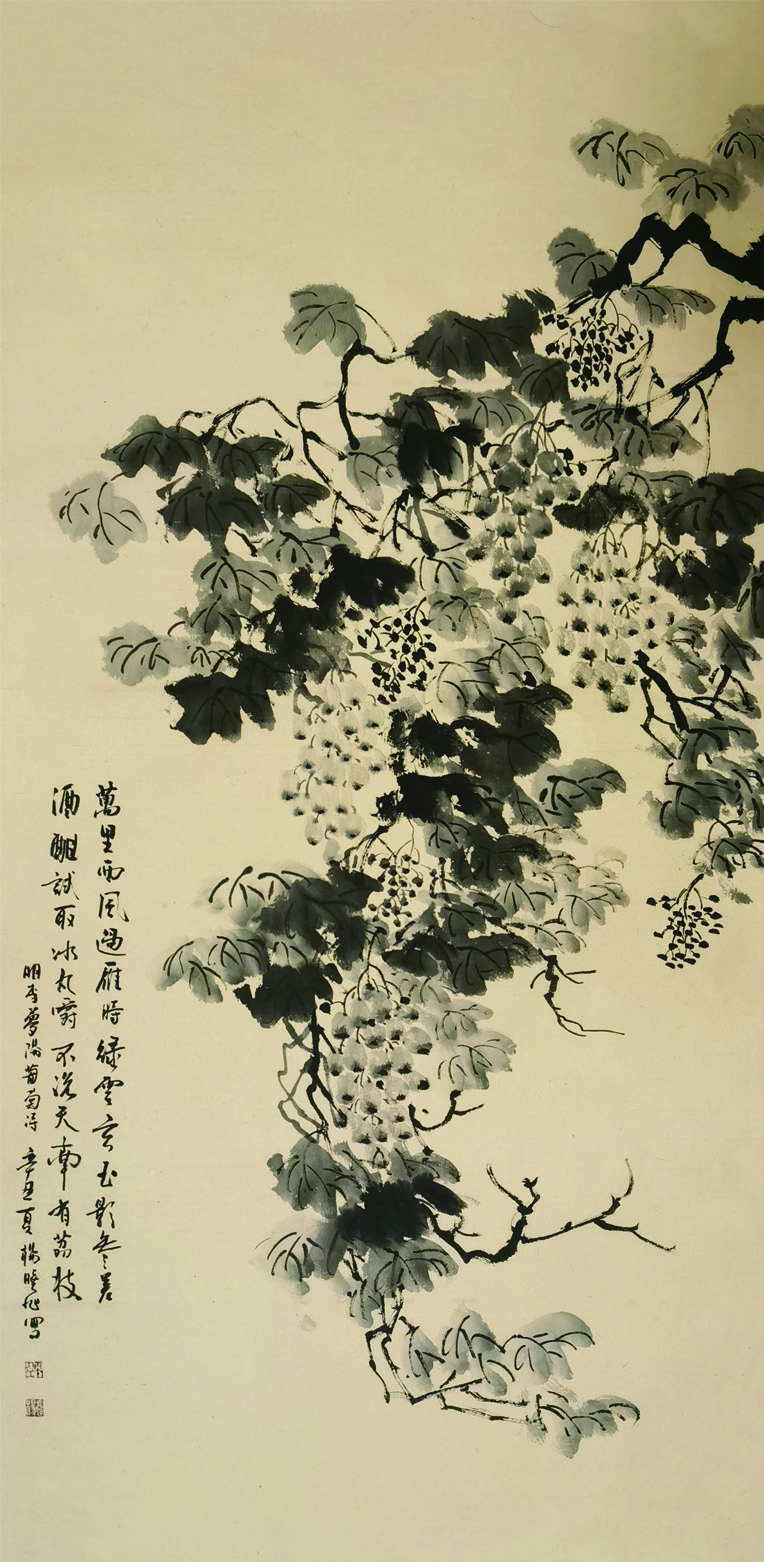 萬里西風過雁時綠雲玄玉影參差
酒酣試取冰丸嚼不說天南有荔枝
明李夢陽葡萄詩 辛丑夏 楊曉寫